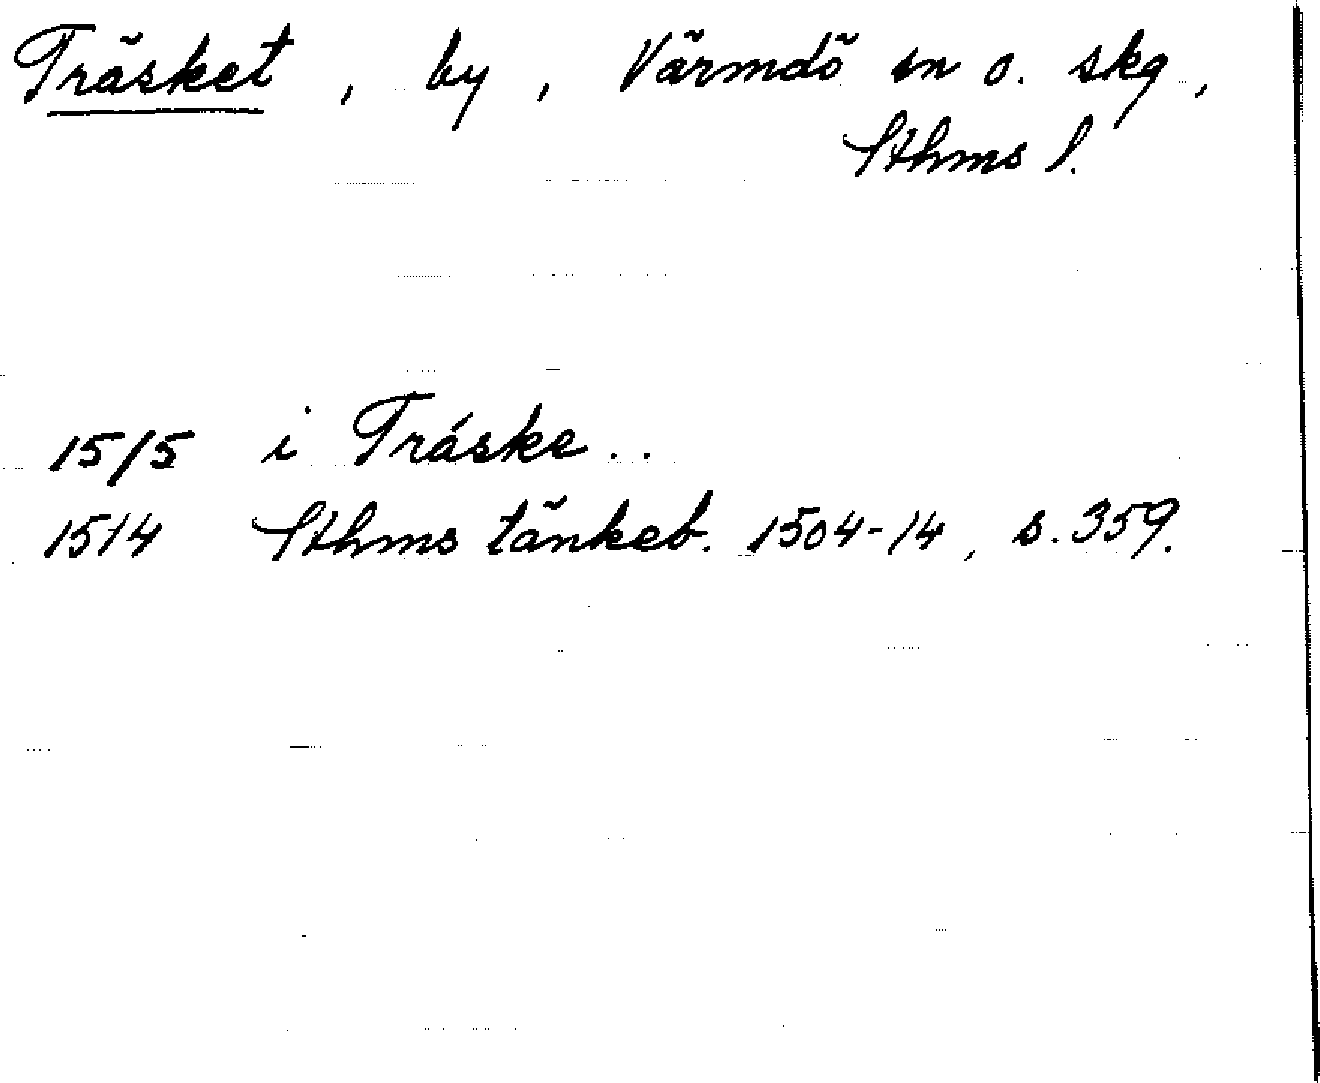 Träsket, by, Värmdö sn o. skg,
Sthms l.
15/5 i Tráske..
1514 Sthms tänkeb. 1504-14, s. 359.